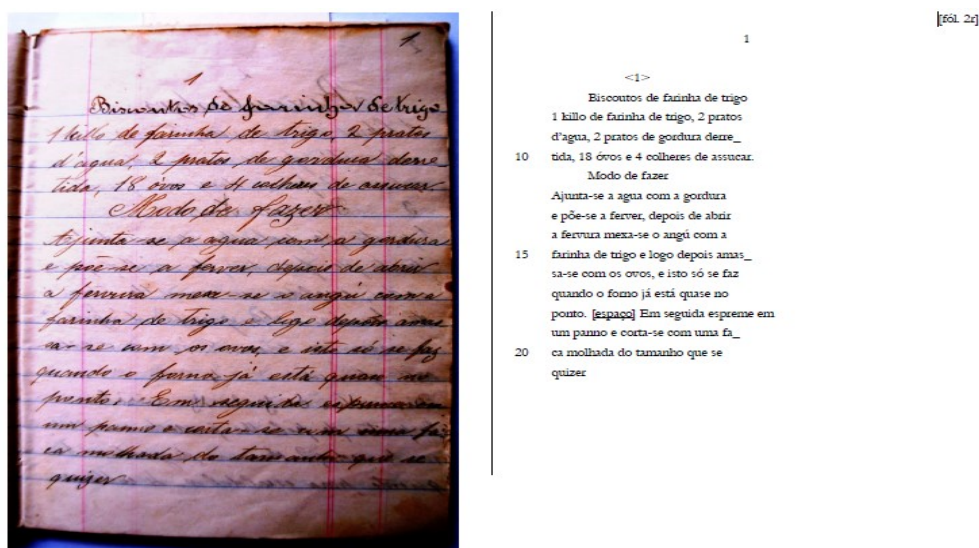 1
1
Biscoutos de farinha de trigo
1 killo de farinha de trigo, 2 pratos
d'agua, 2 pratos de gordura derre
tida, 18 óvos e 4 colheres de assucar.
Modo de fazer
Ajunta-se a agua com a gordura
e põe-se a ferver, depois de abrir
a fervura mexa-se o angú com a
farinha de trigo e logo depois amas
sa-se com os ovos, e isto só se faz
quando o forno já está quase no
ponto. Em seguida espreme em
um panno e corta-se com uma fa
ca molhada do tamanho que se
quizer
[fól. 2r]
1
<1>
Biscoutos de farinha de trigo
1 killo de farinha de trigo, 2 pratos
d'agua, 2 pratos de gordura derre_
10 tida, 18 óvos e 4 colheres de assucar.
Modo de fazer
Ajunta-se a agua com a gordura
e põe-se a ferver, depois de abrir
a fervura mexa-se o angú com a
15 farinha de trigo e logo depois amas_
sa-se com os ovos, e isto só se faz
quando o forno já está quase no
ponto. [espaço] Em seguida espreme em
um panno e corta-se com uma fa_
20 ca molhada do tamanho que se
quizer